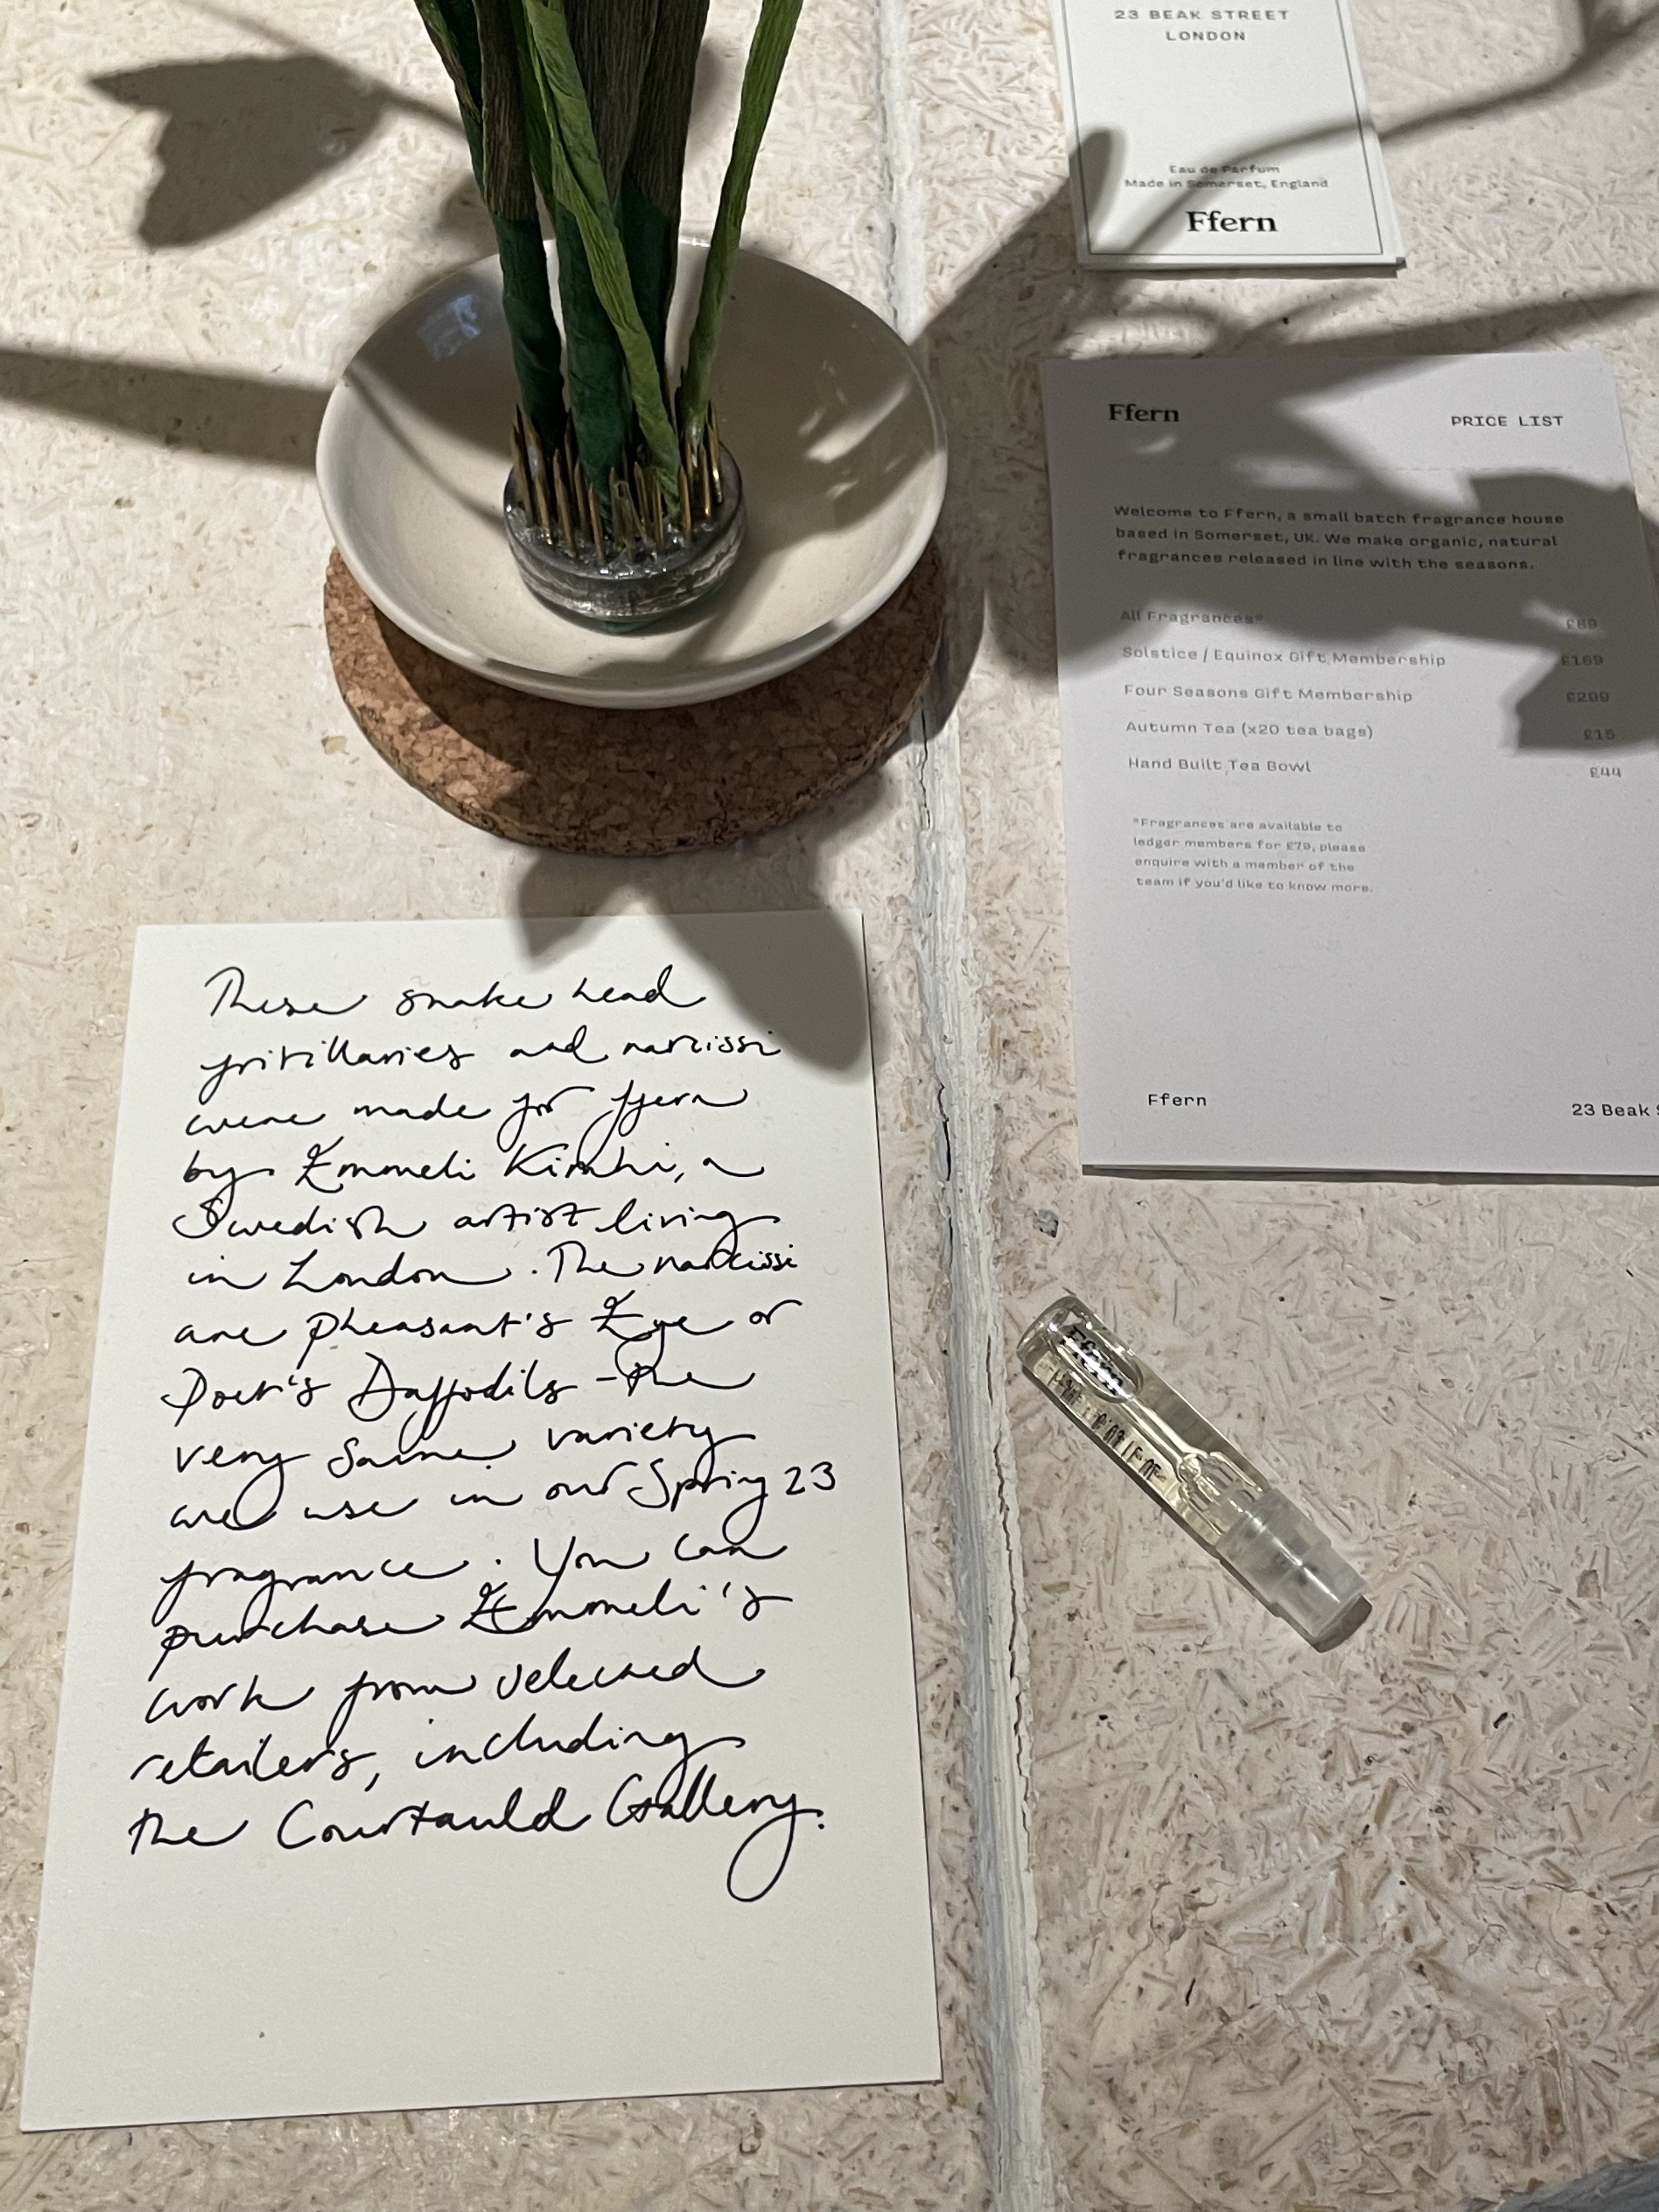 23 BEAK STREET
LONDON
Eau de Parfum
Made in Somerset, England
Ffern
Ffern
PRICE LIST
Welcome to Ffern, a small batch fragrance house
based in Somerset, UK. We make organic, natural
fragrances released in line with the seasons.
All Fragrances* £89
Solstice / Equinox Gift Membership £169
Four Seasons Gift Membership £299
Autumn Tea (x20 tea bags) £15
Hand Built Tea Bowl £44
*Fragrances are available to
ledger members for £79, please
enquire with a member of the
team if you'd like to know more.
Ffern
23 Beak
These snake head
fritillaries and narcissi
were made for ffern
by Emmeli Kimhi, a
Swedish artist living
in London. The narcissi
are pheasant's Eye or
Poet's Daffodils - the
very same variety
we use in our Spring 23
fragrance. You can
purchase Emmeli's
work from selected
retailers, including
the Courtauld Gallery.
Ffern